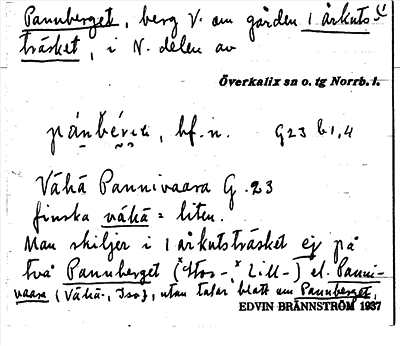 Pannberget, berg V. om gården i Årkuts
träsket, i N. delen av
Överkalix sn o. tg Norrb. l.
bf. n. G 23 b 1,4
Vähä Pannivaara G. 23
finska vähä = liten.
Man skiljer i Årkutsträsket ej på
två Pannberget (*Stor-, *Lill-) el. Panni-
vaara (Vähä-, Iso), utan talar blott om Pannberget.
EDVIN BRÄNNSTRÖM 1937